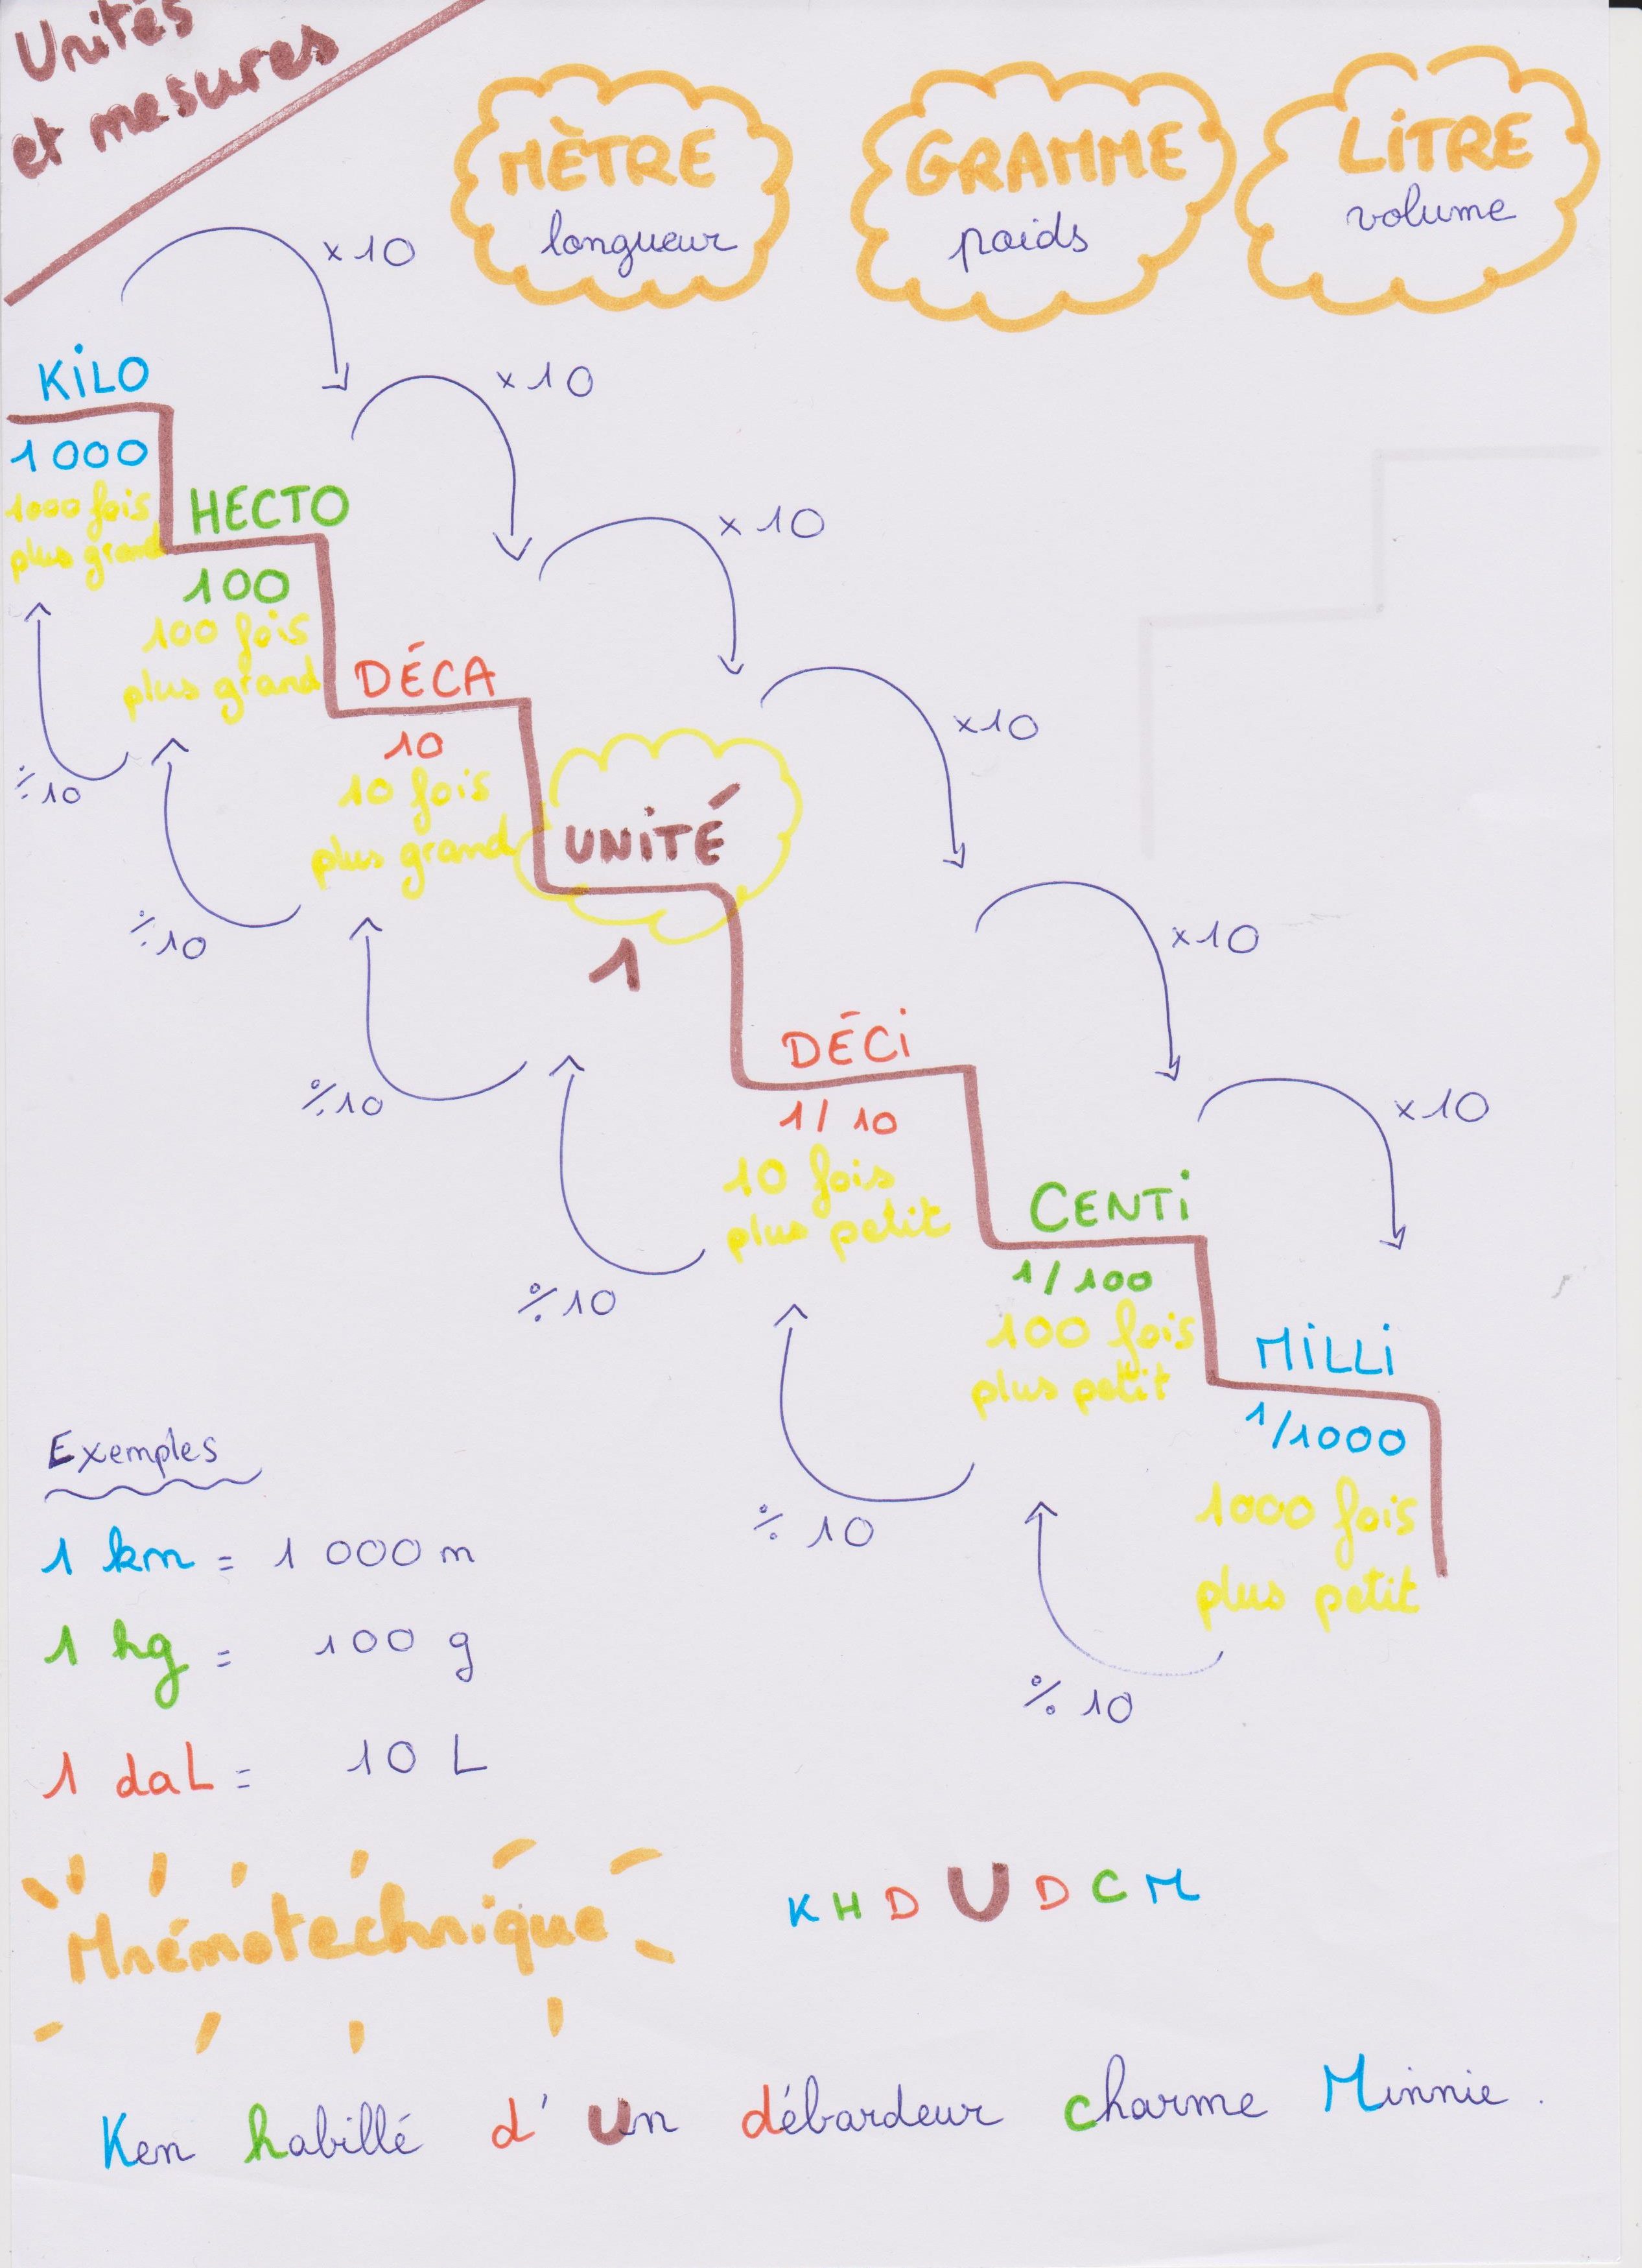 Unités
et mesures
MÈTRE
longueur
GRAMME
poids
LiTRE
volume
x10
KiLO
1000
1000 fois
plus grand
x10
HECTO
100
100 fois
plus grand
x10
÷10
DÉCA
10
10 fois
plus grand
x10
÷10
UNiTÉ
1
x10
÷10
DÉCi
1/10
10 fois
plus petit
x10
÷10
CENTi
1/100
100 fois
plus petit
÷10
MiLLi
1/1000
1000 fois
plus petit
÷10
Exemples
1 km = 1 000 m
1 hg = 100 g
1 daL = 10 L
Mnémotechnique
K H D U D C M
Ken habillé d'un débardeur charme Minnie.